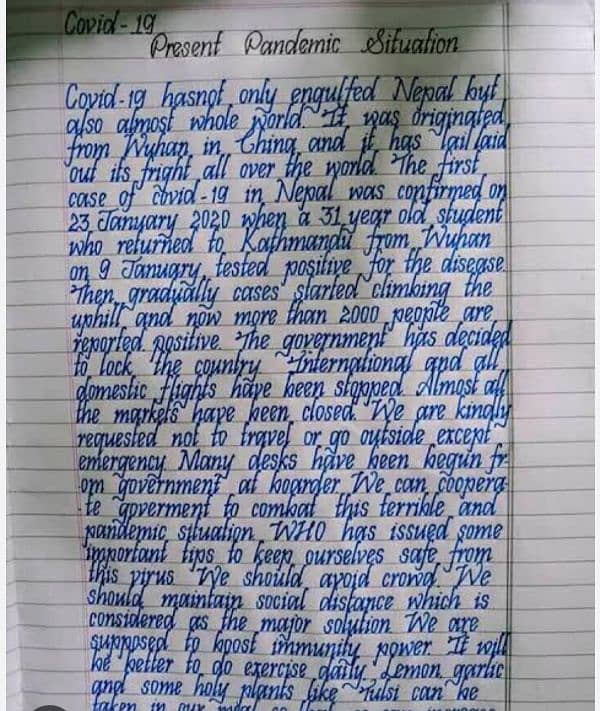 Covid-19
Present Pandemic Situation
Covid-19 hasnot only engulfed Nepal but
also almost whole world. It was originated
from Wuhan in China and it has tail laid
out its fright all over the world. The first
case of covid-19 in Nepal was confirmed on
23 January 2020 when a 31 year old student
who returned to Kathmandu from Wuhan
on 9 January, tested positive for the disease.
Then, gradually cases started climbing the
uphill and now more than 2000 people are
reported positive. The government has decided
to lock the country. International and all
domestic flights have been stopped. Almost all
the markets have been closed. We are kindly
requested not to travel or go outside except
emergency. Many desks have been begun fr-
om government at boarder. We can coopera-
-te goverment to combat this terrible and
pandemic situation. WHO has issued some
important tips to keep ourselves safe from
this virus. We should avoid crowd. We
should maintain social distance which is
considered as the major solution. We are
supposed to boost immunity power. It will
be better to do exercise daily. Lemon, garlic
and some holy plants like Tulsi can be
taken in our meal so that